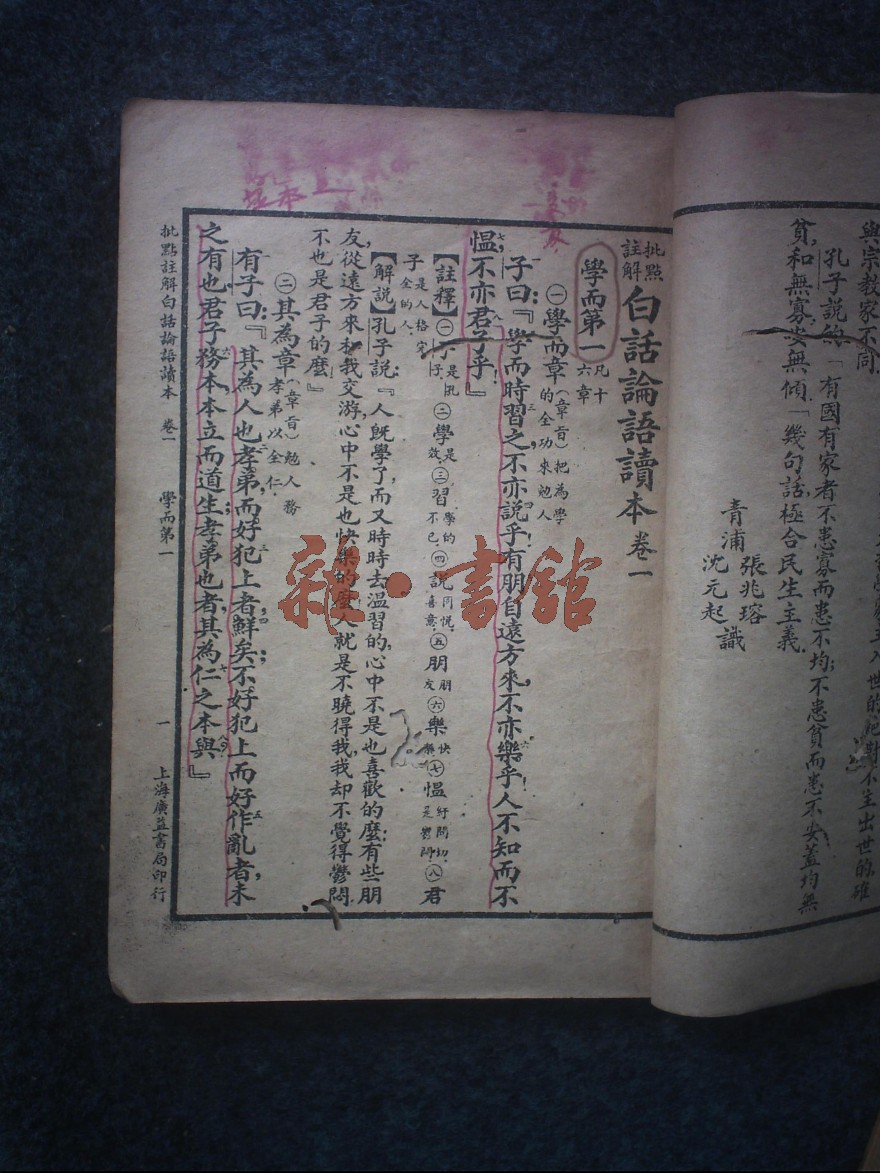 與宗教家不同
孔子說的「有國有家者不患寡而患不均；不患貧而患不安蓋均無
貧，和無寡，安無傾」幾句話，極合民生主義。
青浦
張兆瑢
沈元起
識
批點
註解
白話論語讀本 卷一
學而第一
凡十
六章
㊀學而章
(章旨)把為學
的全功來勉人
子曰：『學而時習之，不亦説乎，有朋自遠方來，不亦樂乎，人不知而不
慍，不亦君子乎』
【註釋】㊀子 是孔子。 ㊁學 是效。 ㊂習 學的不已。 ㊃説 同悅，喜意。 ㊄朋 朋友 ㊅樂 快樂。 ㊆慍 紆問切，是鬱悶。 ㊇君
子 是人格完全的人。
【解說】孔子說：『人既學了，而又時時去溫習的，心中不是也喜歡的麼；有些朋
友，從遠方來和我交游，心中不是也快樂的麼人就是不曉得我，我却不覺得鬱悶，
不也是君子的麼』
㊁其為章
(章旨)勉人務
孝弟以全仁。
有子曰：『其為人也孝弟，而好犯上者，鮮矣；不好犯上而好作亂者，未
之有也君子務本，本立而道生；孝弟也者，其為仁之本與』
批點註解白話論語讀本 卷一 學而第一 一 上海廣益書局印行
雜·書館